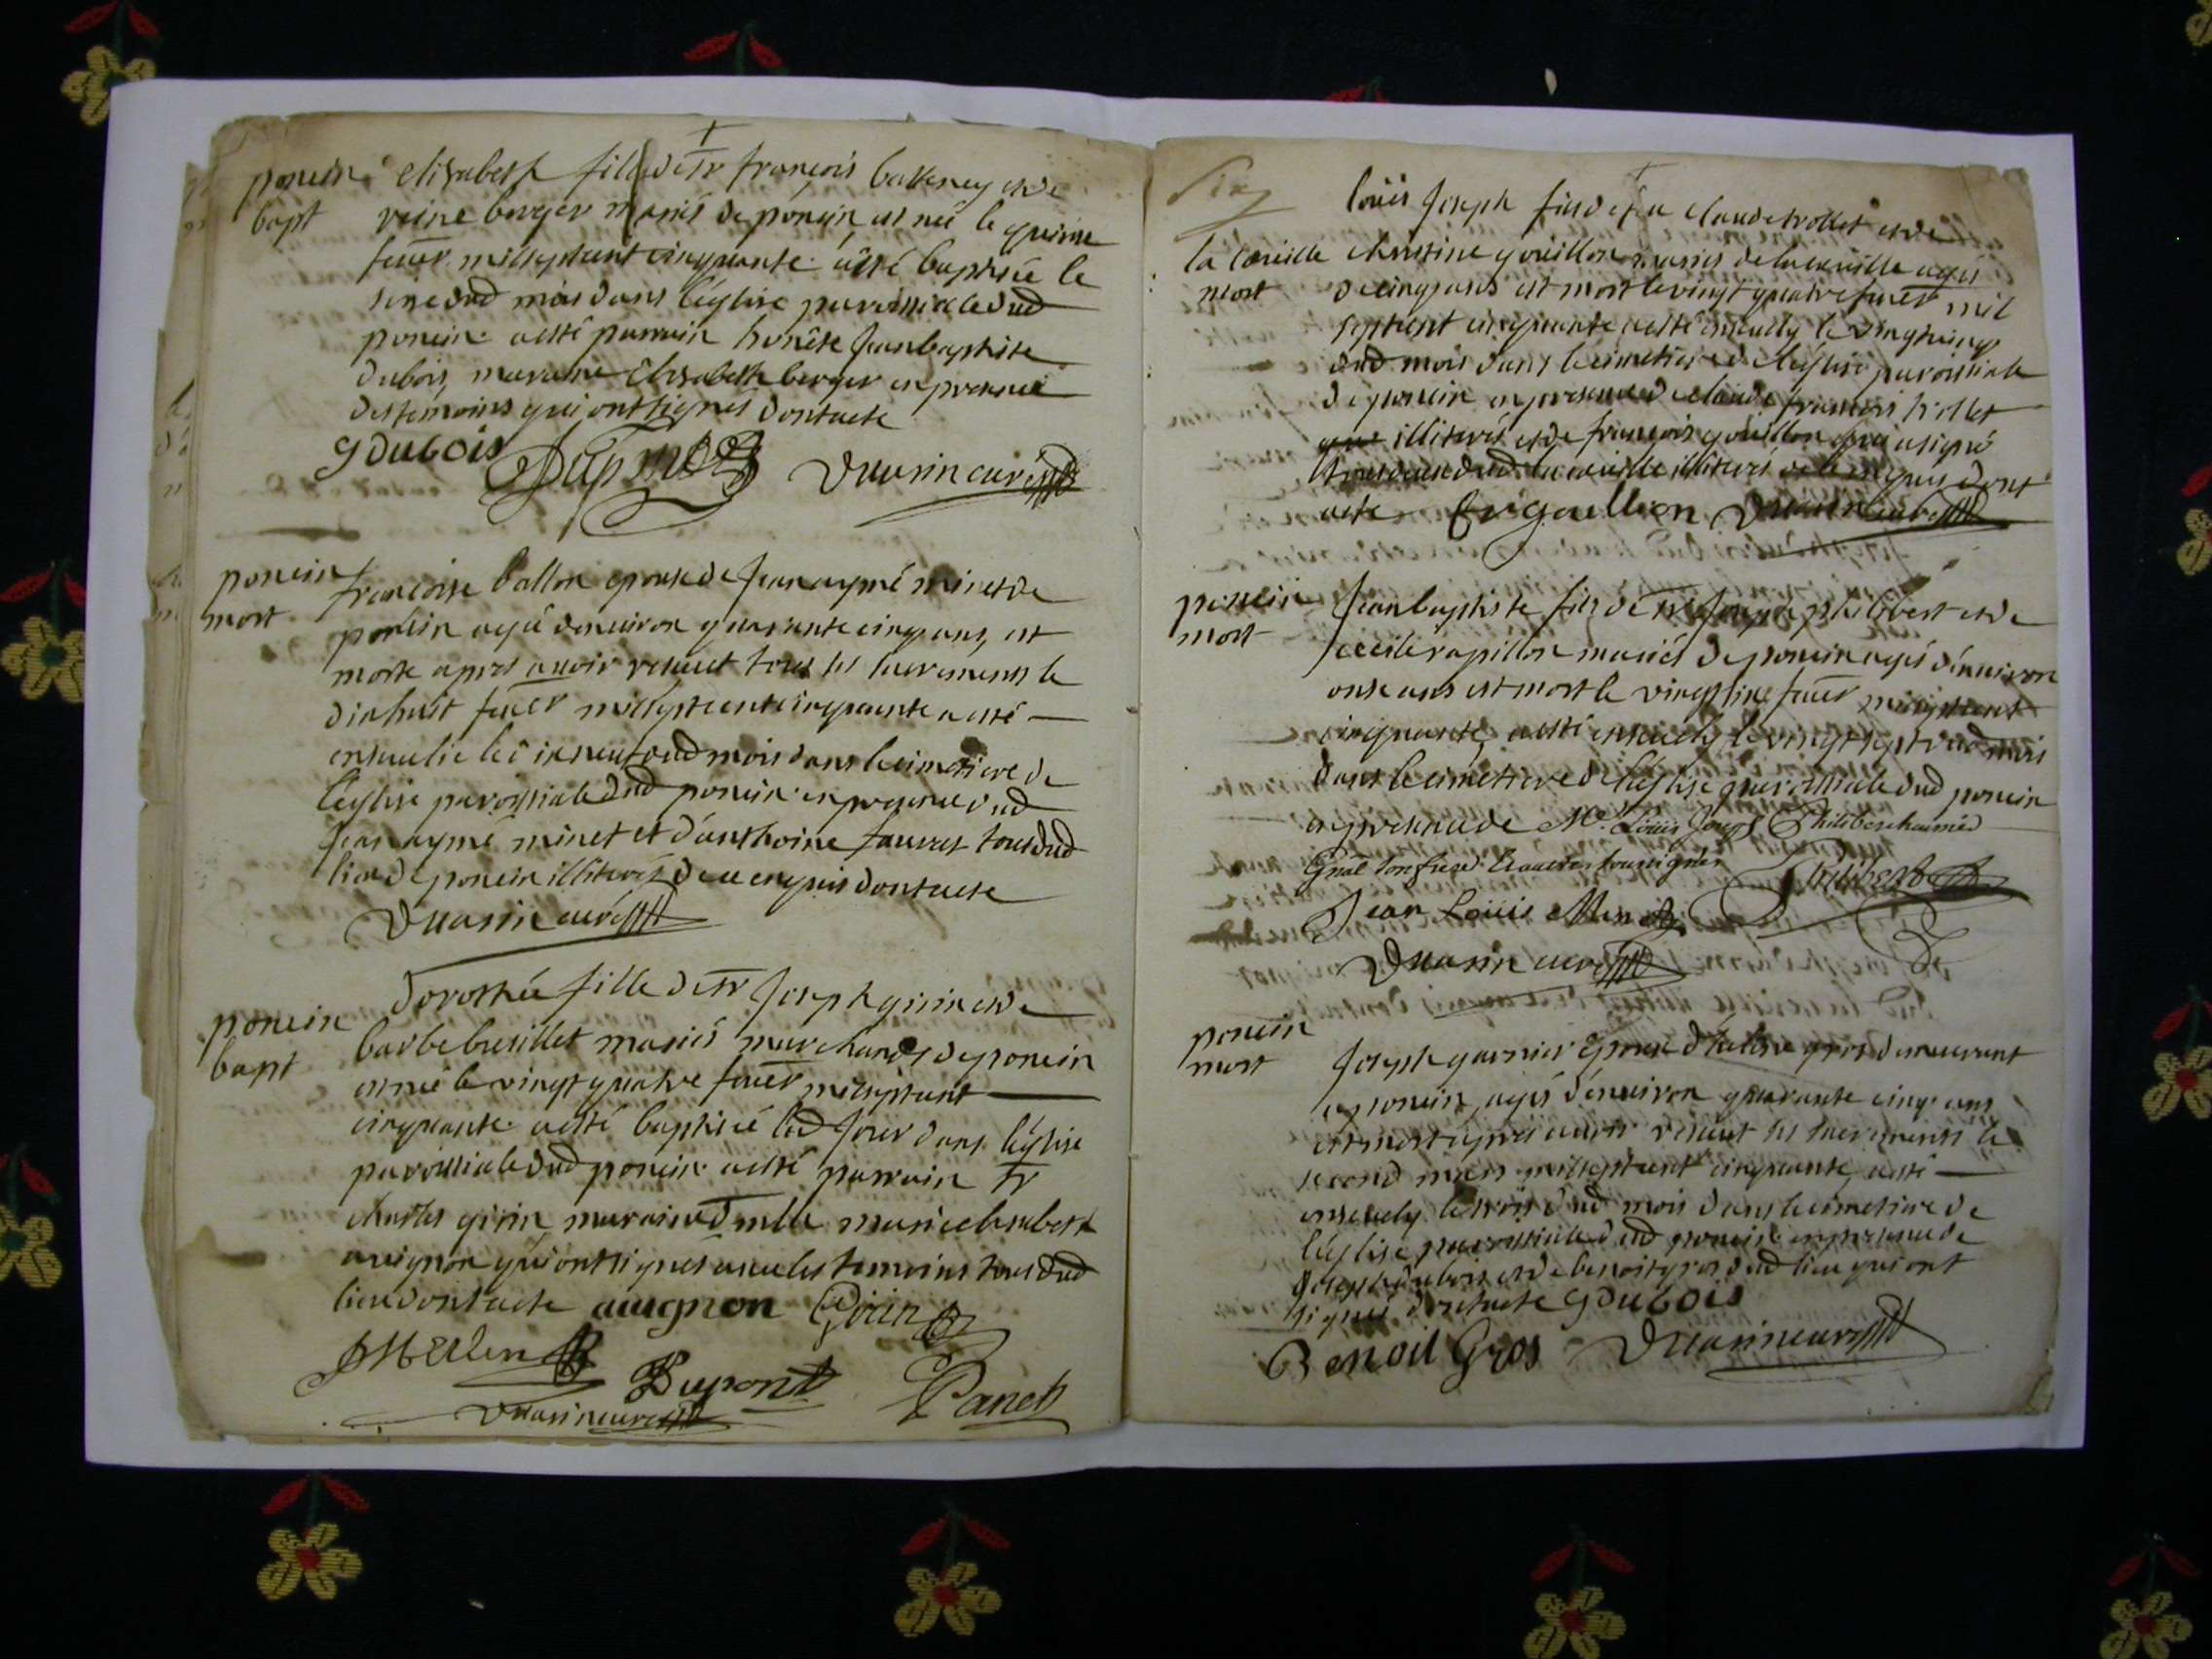 poncin
bapt
elizabeth fille de sr françois balleney et de
reine berger mariés de poncin est née le quinze
feuer mil sept cent cinquante a esté baptisée le
seize dud mois dans l'église paroissiale dud
poncin a esté parrain honête jean baptiste
dubois, maraine Elisabeth berger en presence
des témoins qui ont signés dont acte
GDubois Dupont Duuarin curé
poncin
mort
francoise ballon epouse de jean aymé minet de
poncin agée d'enuiron quarante cinq ans, est
morte apres auoir receuet tous les sacrements le
dixhuit feuer mil sept cent cinquante a esté
enseuelie le dixneuf dud mois dans le cimetiere de
l'église paroissiale dud poncin en presence dud
jean aymé minet et d'anthoine fauret tous dud
lieu de poncin illiterés de ce enquis dont acte
Duuarin curé
poncin
bapt
dorothée fille de sr joseph girin et de
barbe breillet mariés marchands de poncin
est née le vingt quatre feuer mil sept cent
cinquante a esté baptisée led jour dans l'église
paroissiale dud poncin a esté parrain sr
charles girin, maraine dmlle marie elisabeth
auignon qui ont signés auec les temoins tous dud
lieu dont acte auignon Girin
JMerlen
Dupont Panet
Duuarin curé
la cueille
mort
loüis Joseph fils de feu claude trollet et de
christine goüillon mariés de la cueille agés
de cinq ans est mort le vingt quatre feuer mil
sept cent cinquante a esté enseuely le vingtcinq
dud mois dans le cimetiere de l'église paroissiale
de poncin en presence de claude francois trollet
illiteré et de françois goüillon qui a signé
tous deux dud la cueille illiteré de ce enquis dont
acte goullion Duuarin curé
poncin
mort
Jean baptiste fils de me Joseph philibert et de
cecile rapillon mariés de poncin agés d'enuiron
onze ans est mort le vingt sixe feuer mil sept cent
cinquante, a esté enseuely le vingt sept dud mois
dans le cimetiere de l'église paroissiale dud poncin
en presence de Me Loüis Joseph Philibert
son frere soussignés Philibert
Jean Loüis
Duuarin curé
poncin
mort
Joseph garnier epoux gros demeurant
a poncin, agés d'enuiron quarante cinq ans
est mort apres auoir receuet les sacrements le
second mars mil sept cent cinquante, a esté
enseuely le trois dud mois dans le cimetiere de
l'église paroissiale dud poncin en presence de
dubois et de benoit gros dud lieu qui ont
signés dont acte GDubois
Benoit Gros Duuarin curé